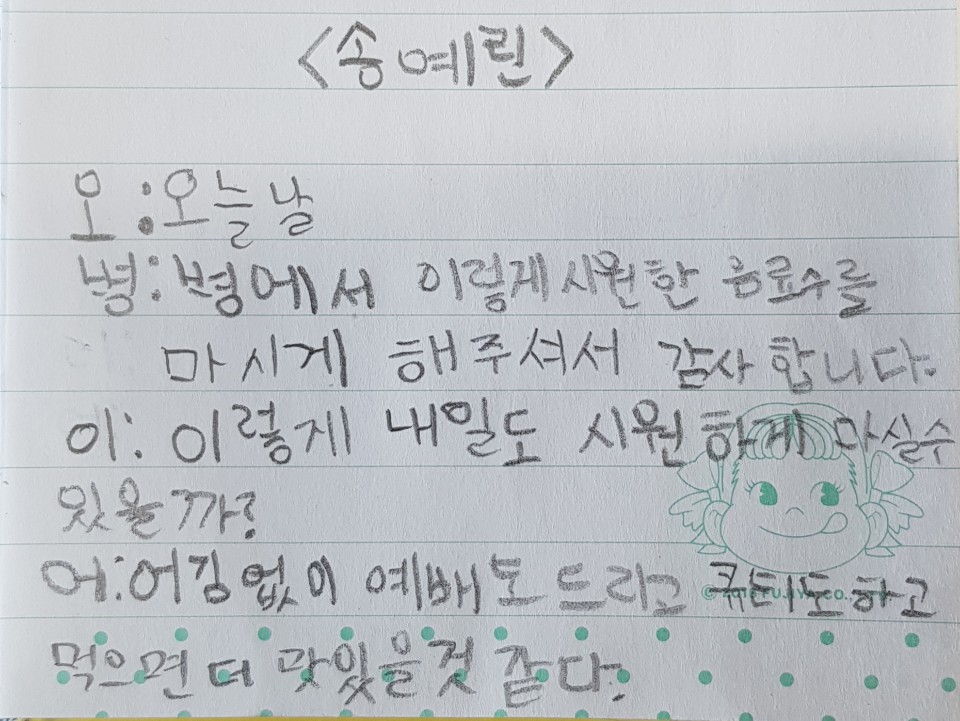 <송예린>
오:오늘날
병:병에서 이렇게 시원한 음료수를
마시게 해주셔서 감사합니다.
이: 이렇게 내일도 시원하게 마실수
있을까?
어:어김없이 예배도 드리고 큐티도하고
먹으면 더 맛있을것 같다.